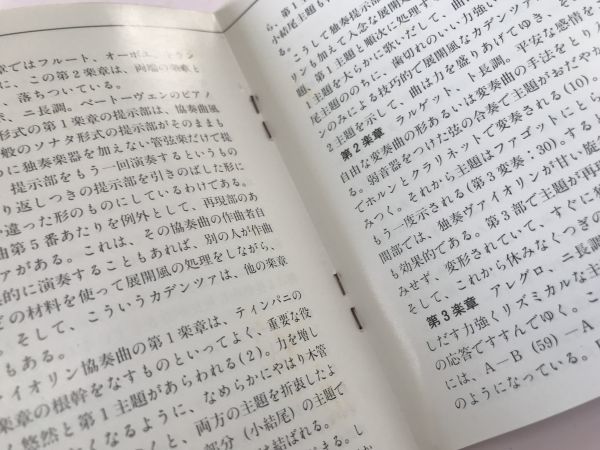 章ではフルート、オーボエ、クラリン
に、この第2楽章は、両端の楽章と
、落ちついている。
章、ニ長調。ベートーヴェンのピアノ
形式の第1楽章の提示部は、協奏曲風
般のソナタ形式の提示部がそのままも
つに独奏楽器を加えない管弦楽だけで提
、提示部をもう一回演奏するというもの
り返しつきの提示部を引きのばした形に
や違った形のものにしているわけである。
曲第5番あたりを例外として、再現部のあ
ァがある。これは、その協奏曲の作曲者自
的に演奏することもあれば、別の人が作曲
どの材料を使って展開風の処理をしながら、
。そして、こういうカデンツァは、他の楽章
もある。
イオリン協奏曲の第1楽章は、ティンパニの
楽章の根幹をなすものといってよく、重要な役
悠然と第1主題があらわれる(2)。力を増し
くなるように、なめらかにやはり木管
くと、両方の主題を折衷したよ
部分(小結尾)の主題で
は結ばれる。
る。し
ら、第1
小結尾主題も
る。
こうして独奏提示部
リンも加えて入念な展開
題、第1主題と順次に処理す
1主題を大らかに歌いだして、曲
尾主題ののちに、歯切れのいい力強い
ンのみによる技巧的で展開風なカデンツァ
2主題を示して、曲は力を盛りあげてゆき、そ
第2楽章 ラルゲット、ト長調。平安な感情を
自由な変奏曲の形あるいは変奏曲の手法をとり入
る。弱音器をつけた弦の合奏で主題がおだやか
でホルンとクラリネットで変奏される(10)。
みつく。それから主題はファゴットにとら
もう一度示される(第3変奏・30)。する
間部では、独奏ヴァイオリンが甘い旋
も効果的である。第3部で主題が再現
みせず、変形されていて、すぐに独
そして、これから休みなくつぎの
第3楽章 アレグロ、ニ長調
しだす力強くリズミカルな主
の応答ですすんでゆく。こ
には、A—B(59)—A
のようになっている。